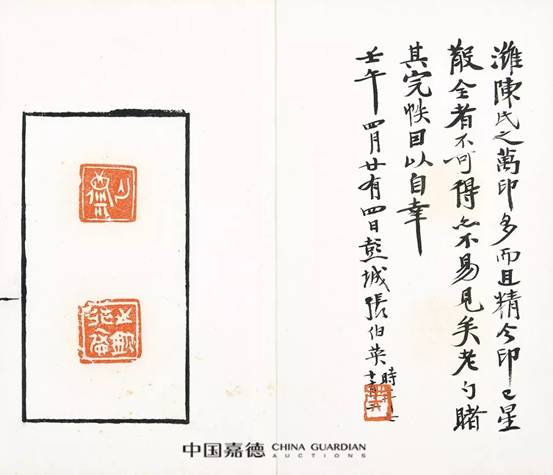 濰陳氏之萬印多而且精今印已星
散全者不可得亦不易見矣老勺賭
其完帙因以自幸
壬午四月廿有四日彭城張伯英時年七十二
中国嘉德 CHINA GUARDIAN
AUCTIONS